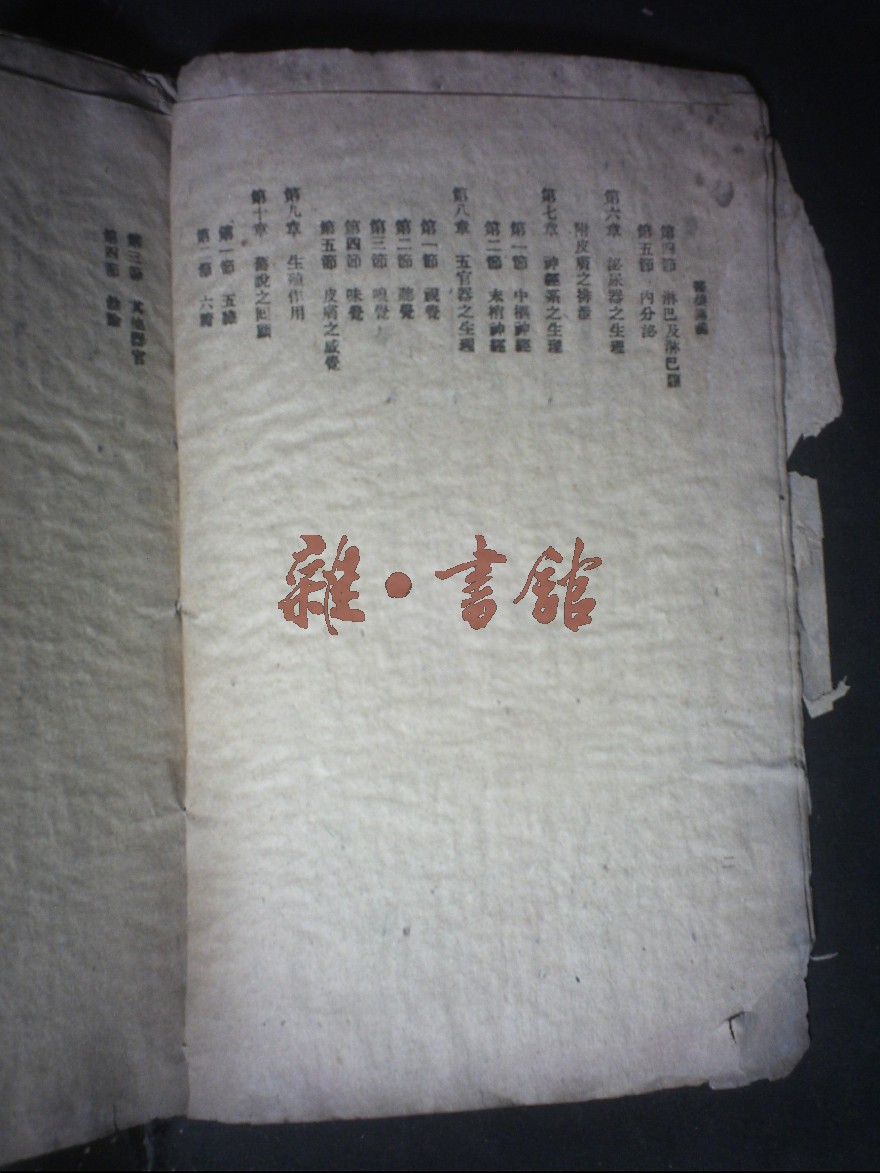 醫學講義
第四節 淋巴及淋巴腺
第五節 內分泌
第六章 泌尿器之生理
附皮膚之排泄
第七章 神經系之生理
第一節 中樞神經
第二節 末梢神經
第八章 五官器之生理
第一節 視覺
第二節 聽覺
第三節 嗅覺
第四節 味覺
第五節 皮膚之感覺
第九章 生殖作用
第十章 舊說之回顧
第一節 五臟
第二節 六腑
二
第三節 其他器官
第四節
雜·書館